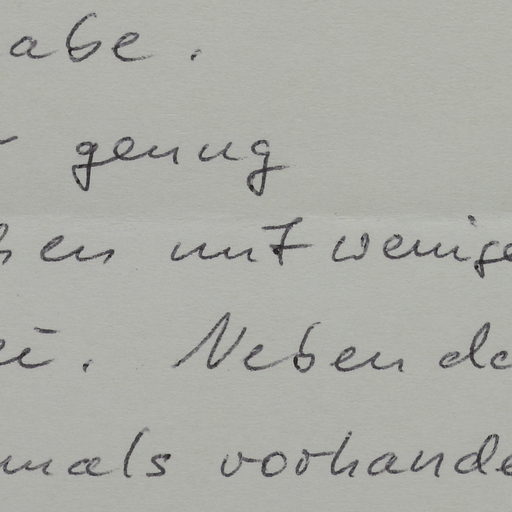 abe.
genug
en mit wenige
ei. Neben da
mals vorhande